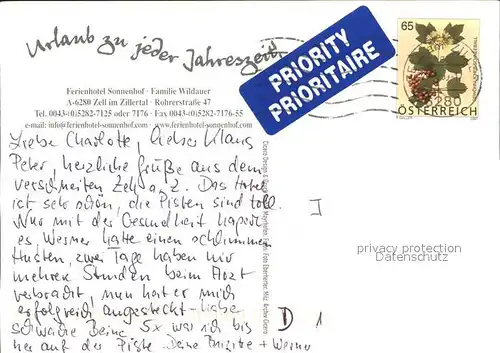 Urlaub zu jeder Jahreszeit
65
PRIORITY
PRIORITAIRE
280
ÖSTERREICH
Ferienhotel Sonnenhof · Familie Wildauer
A-6280 Zell im Zillertal · Rohrerstraße 47
Tel. 0043-(0)5282-7125 oder 7176 · Fax 0043-(0)5282-7176-55
e-mail: info@ferienhotel-sonnenhof.com · www.ferienhotel-sonnenhof.com
Liebe Charlotte, lieber Klaus
Peter, herzliche Grüße aus dem
verschneiten Zell a. Z. Das Hotel
ist sehr schön, die Pisten sind toll.
Nur mit der Gesundheit hapert
es, Werner hatte einen schlimmen
Husten, zwei Tage haben wir
mehrere Stunden beim Arzt
verbracht, nun hat er mich
erfolgreich angesteckt - habe
schwache Beine. 5x war ich bis
her auf der Piste. Deine Brigitte + Werner
privacy protection
D 1